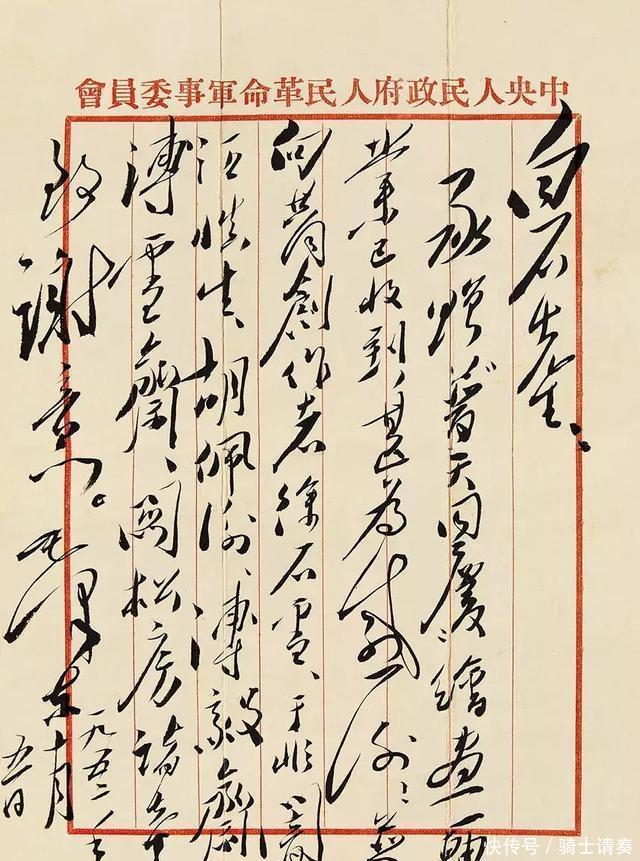 中央人民政府人民革命軍事委員會
白石先生：
承贈普天同慶繪畫一軸
業已收到，甚為感謝！並
向共同創作者徐石雪、于非闇
汪慎生、胡佩衡、溥毅齋
溥雪齋、關松房諸先生
致謝意。
毛澤東
一九五二年
十月
五日
快传号/骑士请奏